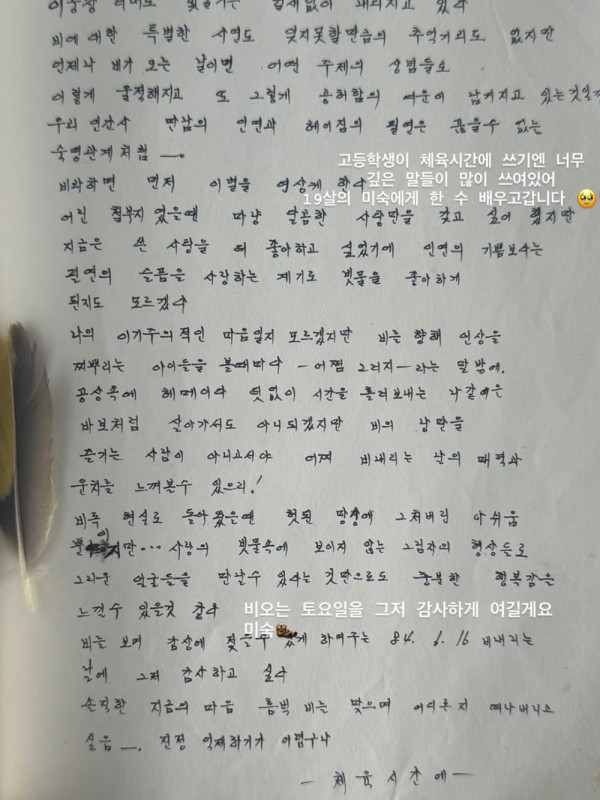 비에 대한 특별한 사연도 잊지못할만큼의 추억거리도 없지만
언제나 비가 오는 날이면 어떤 주제의 상념들로
이렇게 울적해지고 또 그렇게 공허함의 여운이 남겨지고 있는것일까
우리 인간사 만남의 인연과 헤어짐의 필연은 끊을수 없는
숙명관계처럼 —.
고등학생이 체육시간에 쓰기엔 너무
깊은 말들이 많이 쓰여있어
19살의 미숙에게 한 수 배우고갑니다 🥹
비라하면 먼저 이별을 연상케 한다
어린 철부지 였을때 마냥 달콤한 사랑만을 갖고 싶어 했지만
지금은 쓴 사랑을 더 좋아하고 싶었기에 인연의 기쁨보다는
필연의 슬픔을 사랑하는 계기로 빗물을 좋아하게
된지도 모르겠다
나의 이기주의적인 마음일지 모르겠지만 비를 향해 인상을
찌뿌리는 아이들을 볼때마다 — 어쩜 그러지 — 라는 말 밖에.
공상속에 헤메이다 덧없이 시간을 흘려보내는 나같은
바보처럼 살아가서도 아니되겠지만 비의 낭만을
즐기는 사람이 아니고서야 어찌 비내리는 날의 매력과
운치를 느껴볼수 있으리!
비록 현실로 돌아왔을땐 헛된 망상에 그쳐버린 아쉬움
이지만... 사랑의 빗물속에 보이지 않는 그림자의 형상들로
그리운 얼굴들을 만날수 있다는 것만으로도 충분한 행복감을
느낄수 있을것 같다
비오는 토요일을 그저 감사하게 여길게요
미숙
비를 보며 감상에 젖을수 있게 하여주는 84. 6. 16 비내리는
날에 그저 감사하고 싶다
솔직한 지금의 마음 흠뻑 비를 맞으며 어디론지 떠나버리고
싶음 —. 진정 억제하기가 어렵구나
— 체육시간에 —